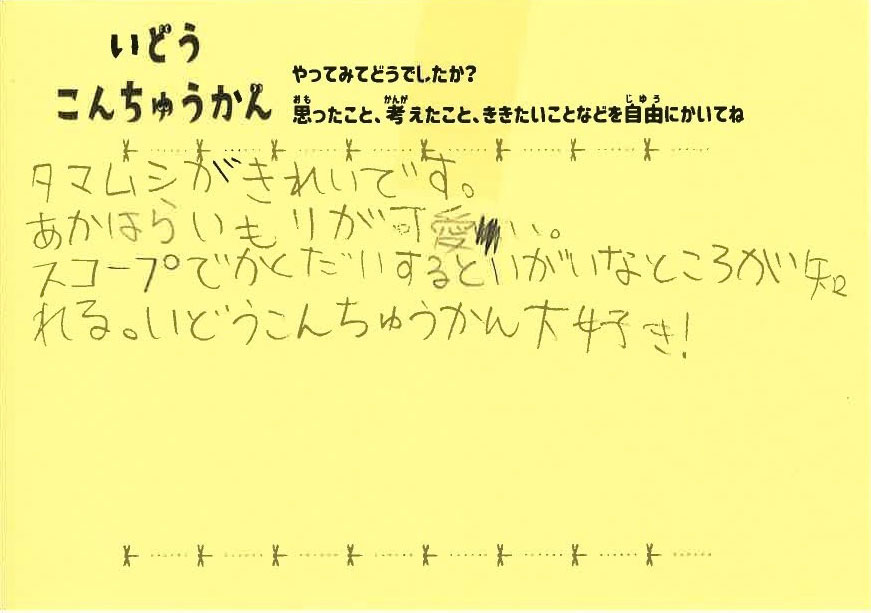 いどう
こんちゅうかん
やってみてどうでしたか?
思ったこと、考えたこと、ききたいことなどを自由にかいてね
タマムシがきれいです。
あかはらいもリが可愛いい。
スコープでかくだいするといがいなところがい知
れる。いどうこんちゅうかん大好き!